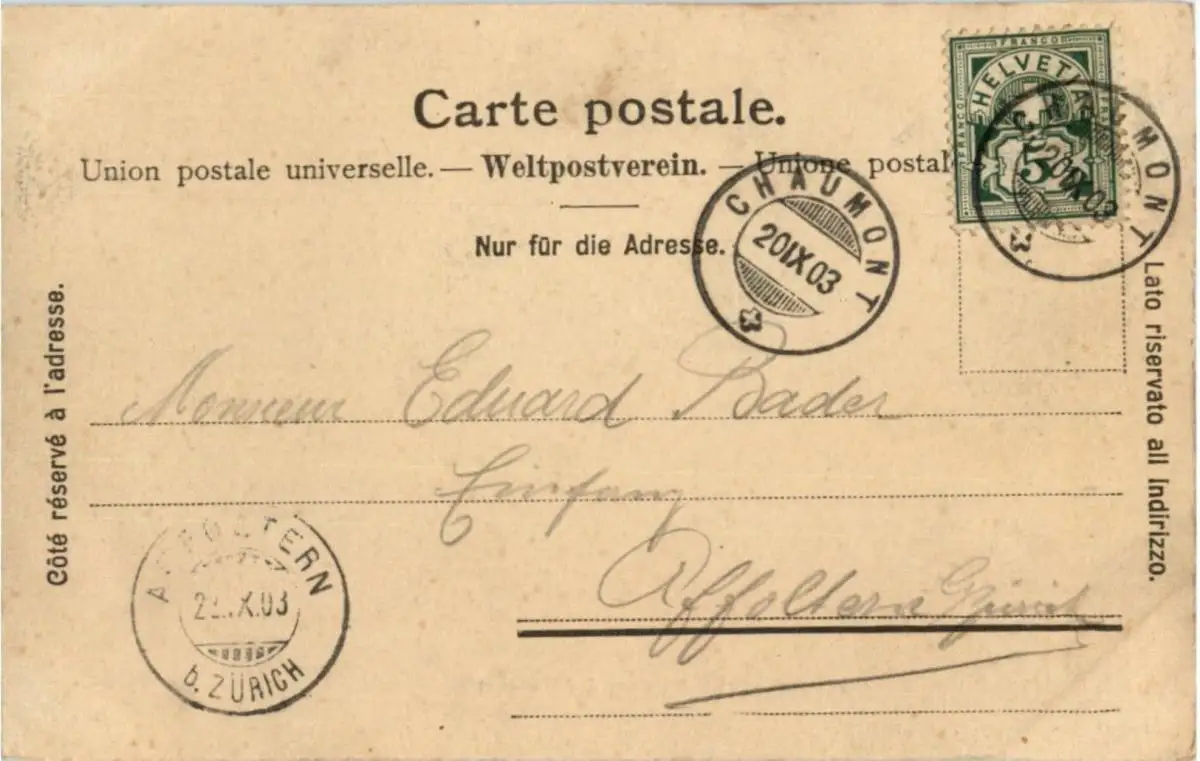 Carte postale.
Union postale universelle. — Weltpostverein. — Unione postal
Nur für die Adresse.
FRANCO
HELVETIA
FRANCO
5
CHAUMONT
20 IX 03
CHAUMONT
20 IX 03
Côté réservé à l'adresse.
Lato riservato all Indirizzo.
Monsieur Eduard Bader
Einfang
Affoltern Zürich
AFFOLTERN
IX.03
b. ZÜRICH